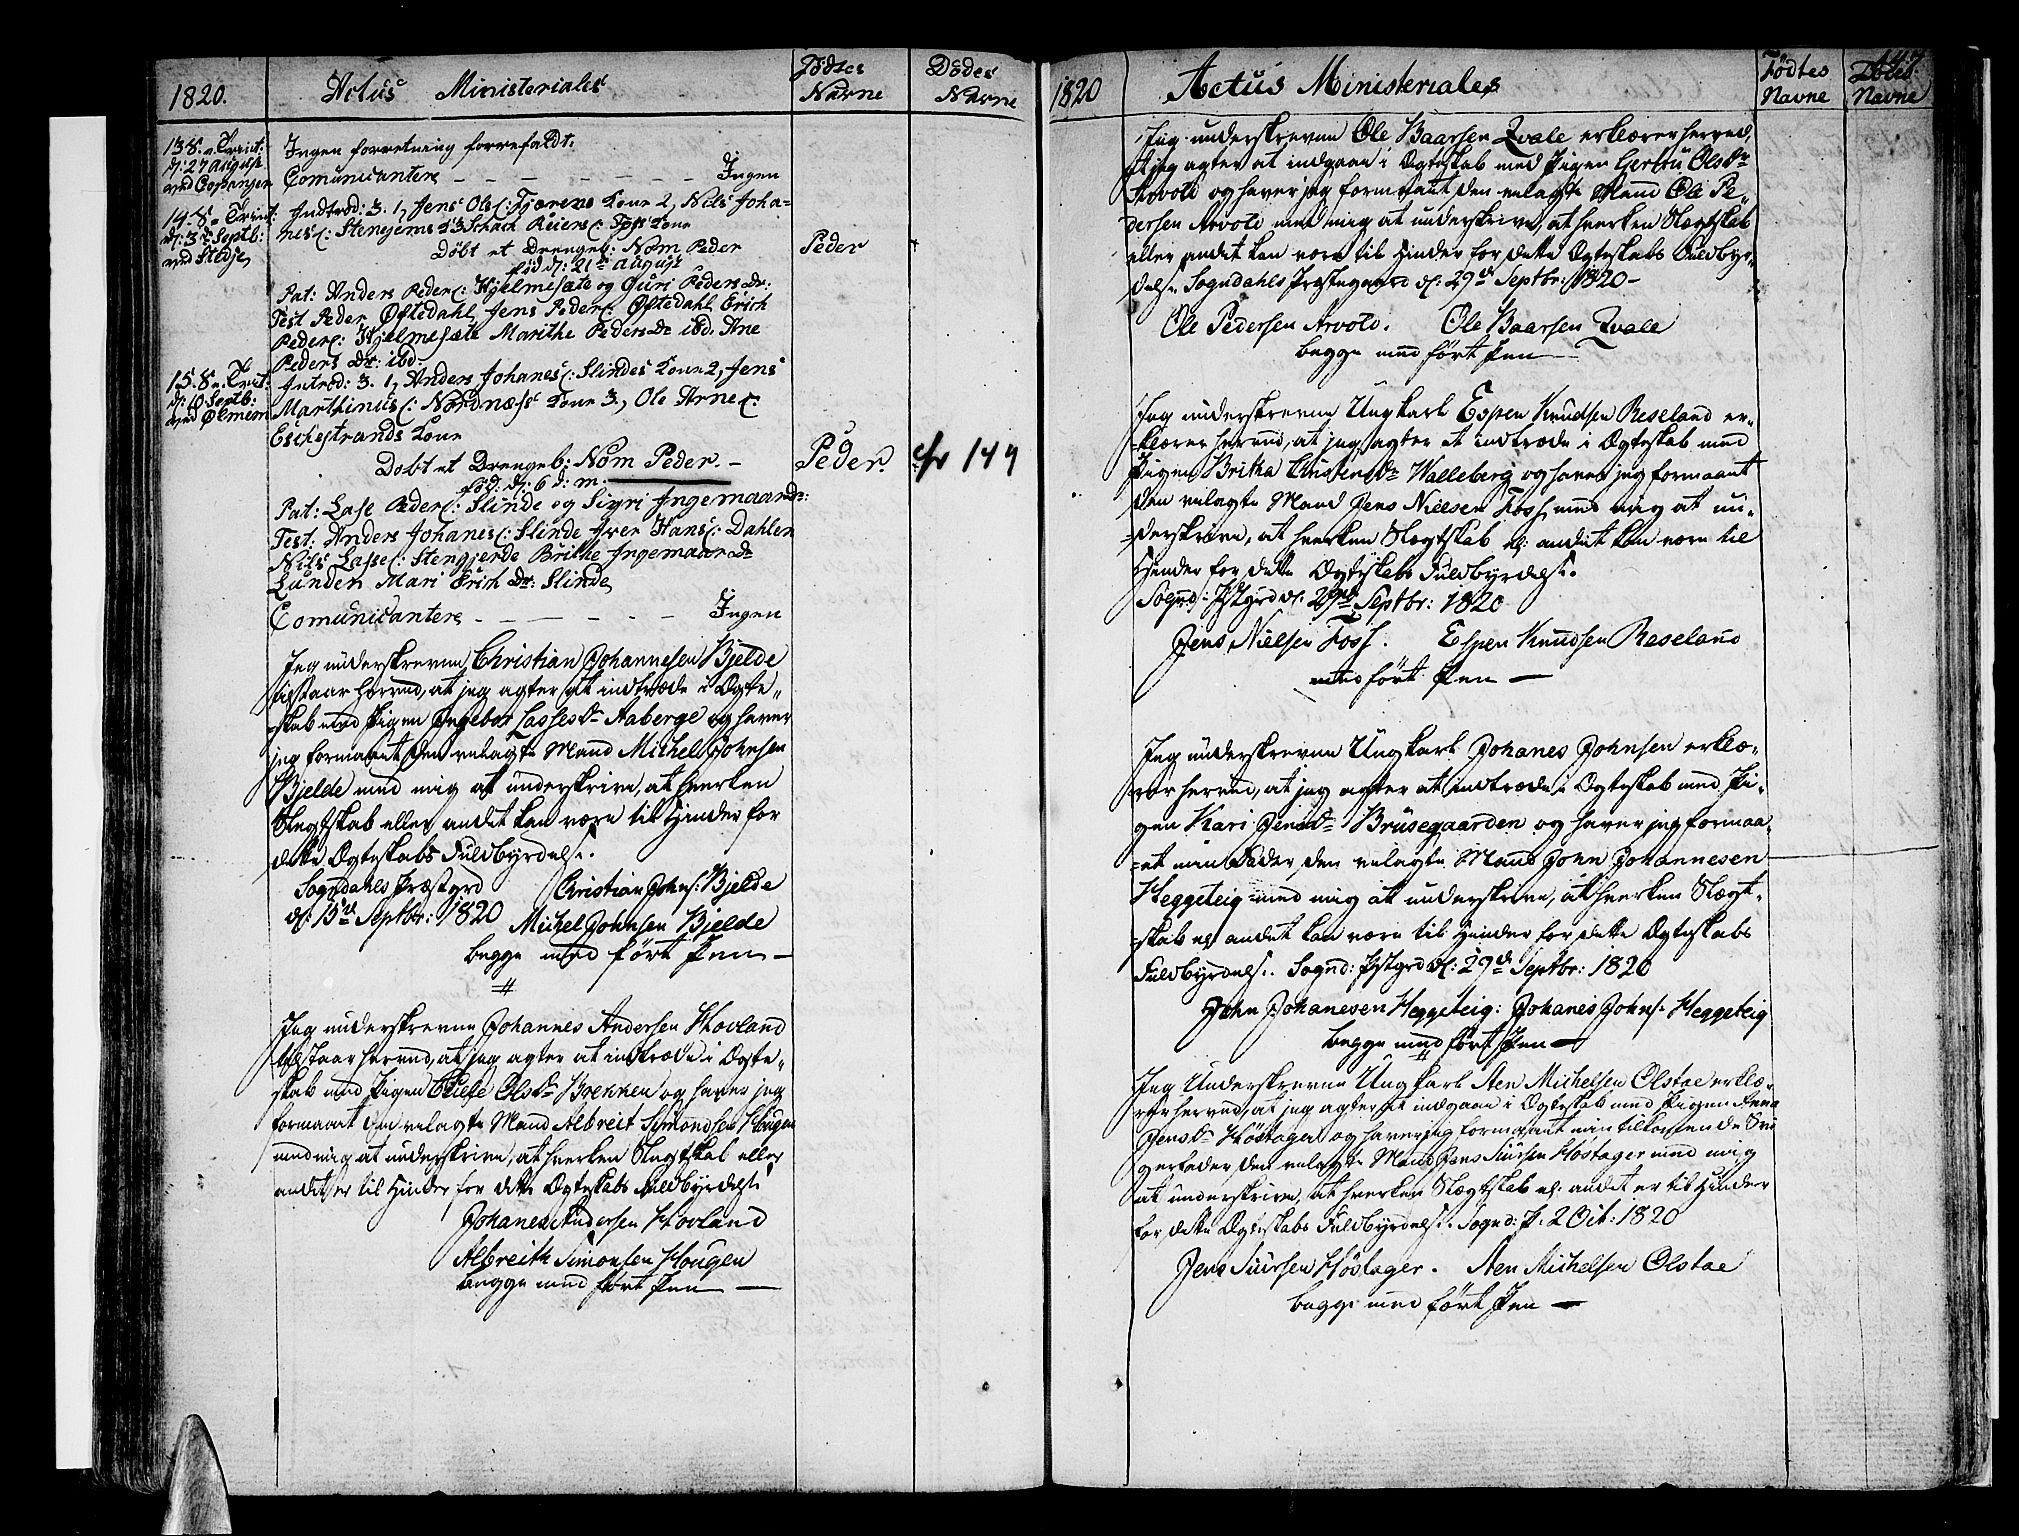 1820.
Actus Ministeriales
Fødtes Navne
Dødes Navne
13 S. a. Trinit:
d: 27 August
ved
Ingen forretning forrefaldt.
Comunicantere — — — — — — Ingen
14 S. a. Trinit:
d: 3de Septb:
ved Stedje
Introd: 3. 1, Jens Ols: Fjærens Kone 2, Nils Joha-
nes: Stenejerns 3 Schach Reiers: Foss Kone
Døbt et Drengeb: Nom Peder
fød d: 21de August
Peder
Pat: Anders Peders: Hjelmesæte og Guri Peders Dr:
Test Peder Øftedahl Jens Peders: Øftedahl Erich
Peders: Hjelmesæte Marithe Peders Dr ibd. Ane
Peders Dr: ibd
15. S. a. Trit:
d: 10 Septb:
ved Ølmem
Introd: 3. 1, Anders Johanes: Slindes Kone 2, Jens
Marthinus: Nordnæss Kone 3, Ole Arnes:
Eschestrands Kone
Døbt et Drengeb: Nom Peder. —
fød: d: 6 d: m.
Peder.
cfr 149
Pat: Lasse Peders: Slinde og Sigri Ingemaar Dr:
Test. Anders Johanes: Slinde Iver Hans: Dahlen
Nils Lasses: Stengjerde Brithe Ingemaar Dr
Lunden Mari Erich Dr: Slinde
Comunicantere — — — — — Ingen
Jeg underskrevne Christian Johannesen Bjelde
tilstaar herved, at jeg agter at indtræde i Ægte-
skab med Pigen Ingebor Lasses Dr Aaberge og haver
jeg formaaet den velagte Mand Michel Johnsen
Bjelde med mig at underskrive, at hverken
Slegtskab eller andet kan være til Hinder for
dette Ægteskabs Fuldbyrdelse.
Sogndahls Præstgrd
d: 15de Septbr: 1820
Christian Johns: Bjelde
Michel Johnsen Bjelde
begge med ført Pen —
Jeg underskrevne Johannes Andersen Hovland
tilstaar herved, at jeg agter at indtræde i Ægte-
skab med Pigen Ols Dr Brekken og haver jeg
formaaet den velagte Mand Albreit Simondsen Hougen
med mig at underskrive, at hverken Slegtskab eller
andet er til Hinder for dette Ægteskabs Fuldbyrdelse
Johanes Andersen Hovland
Albreith Simonsen Hougen
begge med ført Pen —
1820
Actus Ministeriales
Fødtes Navne
Dødes Navne
Jeg underskrevne Ole Baarsen Qvale erklærer herved,
at jeg agter at indgaae i Ægteskab med Pigen Gertru Ols Dr
Arvold og haver jeg formaaet den velagte Mand Ole Pe-
dersen Arvold med mig at underskrive, at hverken Slægtskab
eller andet kan være til Hinder for dette Ægteskabs Fuldbyr-
delse Sogndahls Præstegaard d: 29de Septbr: 1820 —
Ole Pedersen Arvold. Ole Baarsen Qvale
begge med ført Pen —
Jeg underskrevne Ungkarl Espen Knudsen Reseland er-
klærer herved, at jeg agter at indtræde i Ægteskab med
Pigen Britha Dr Walleberg og haver jeg formaaet
den velagte Mand Jens Nielsen Foss, med mig at un-
derskrive, at hverken Slægtskab el: andet kan være til
Hinder for dette Ægteskabs Fuldbyrdelse.
Sognd: Pstgrd d: Septbr: 1820
Jens Nielsen Foss. Espen Knudsen Reseland
med ført Pen —
Jeg underskrevne Ungkarl Johanes Johnsen erklæ-
rer herved, at jeg agter at indtræde i Ægteskab med Pi-
gen Kari Jens Dr Brusegaarden og haver jeg formaa-
et min Fader, den velagte Mand John Johannesen
Heggeteig med mig at underskrive, at hverken Slægt-
skab el andet kan være til Hinder for dette Ægteskabs
Fuldbyrdelse. Sognd: Pstgrd d: 29de Septbr: 1820
John Johanesen Heggeteig: Johanes Johns: Heggeteig
begge med ført Pen —
Jeg Underskrevne Ungkarl Aen Michelsen Olstae erklæ-
rer herved, at jeg agter at indgaae i Ægteskab med Pigen Anna
Jens Dr Høstager og haver jeg formaaet min tilkomende Svi-
gerfader, den velagte Mand Jens Siursen Høstager med mig
at underskrive, at hverken Slægtskab el: andet er til Hinder
for dette Ægteskabs Fuldbyrdelse. Sognd: P. 2 Oct: 1820
Jens Siursen Høstager. Aen Michelsen Olstae
begge med ført Pen —